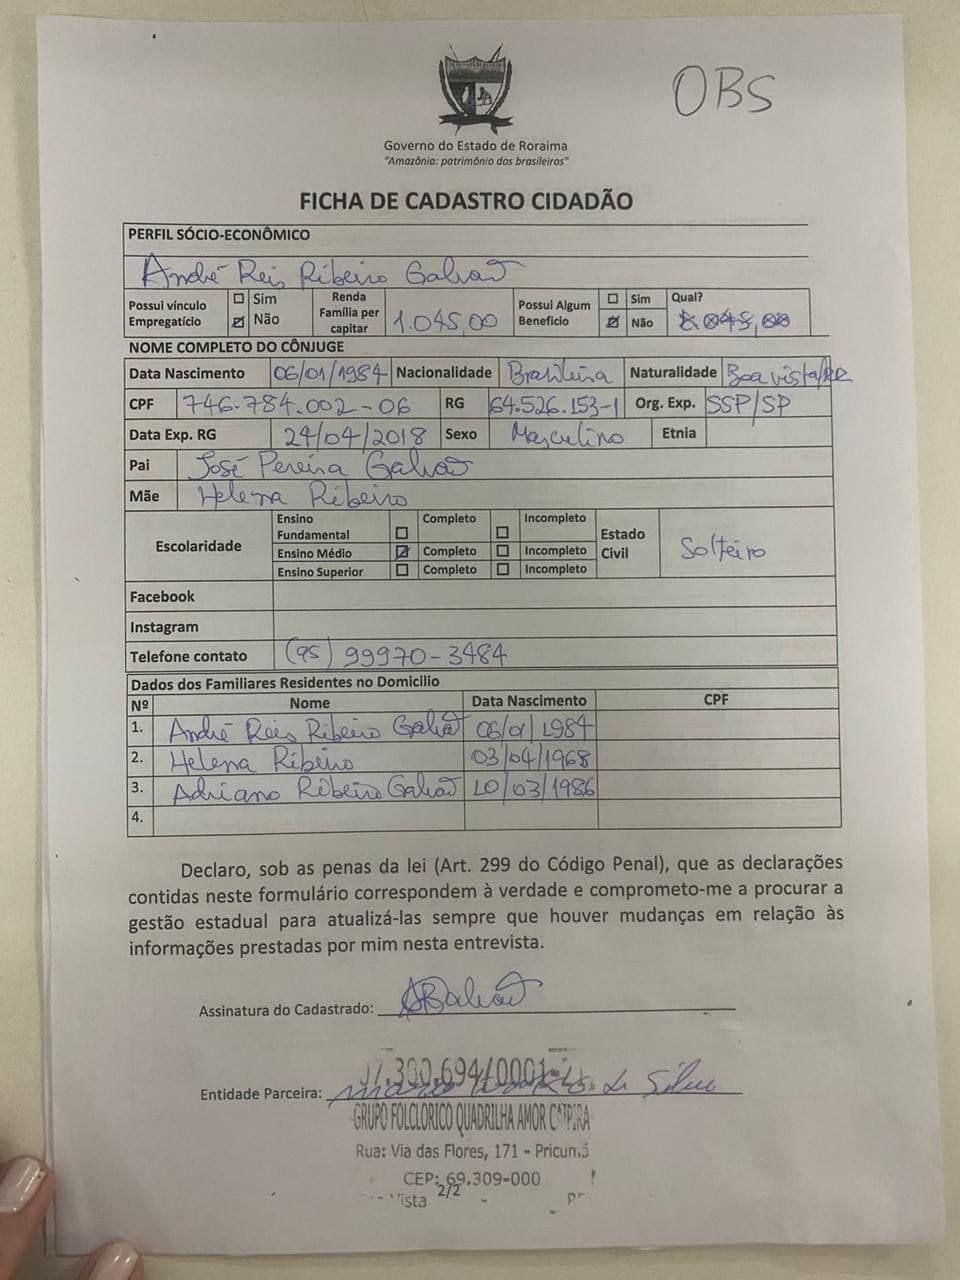 OBS
Governo do Estado de Roraima
"Amazônia: patrimônio dos brasileiros"
FICHA DE CADASTRO CIDADÃO
PERFIL SÓCIO-ECONÔMICO
André Reis Ribeiro Galvão
Possui vínculo Empregatício ☐ Sim ☑ Não Renda Família per capitar 1.045,00 Possui Algum Beneficio ☐ Sim ☑ Não Qual?
NOME COMPLETO DO CÔNJUGE
Data Nascimento 06/01/1984 Nacionalidade Brasileira Naturalidade Boa vista/RR
CPF 746.784.002-06 RG 64.526.153-1 Org. Exp. SSP/SP
Data Exp. RG 24/04/2018 Sexo Masculino Etnia
Pai José Pereira Galvão
Mãe Helena Ribeiro
Escolaridade
Ensino Fundamental ☐ Completo ☐ Incompleto
Ensino Médio ☑ Completo ☐ Incompleto
Ensino Superior ☐ Completo ☐ Incompleto
Estado Civil Solteiro
Facebook
Instagram
Telefone contato (95) 99970-3484
Dados dos Familiares Residentes no Domicilio
Nº Nome Data Nascimento CPF
1. André Reis Ribeiro Galvão 06/01/1984
2. Helena Ribeiro 03/04/1968
3. Adriano Ribeiro Galvão 10/03/1986
4.
Declaro, sob as penas da lei (Art. 299 do Código Penal), que as declarações
contidas neste formulário correspondem à verdade e comprometo-me a procurar a
gestão estadual para atualizá-las sempre que houver mudanças em relação às
informações prestadas por mim nesta entrevista.
Assinatura do Cadastrado: ARGalvão
Entidade Parceira: de Silva
GRUPO FOLCLORICO QUADRILHA AMOR CAIPIRA
Rua: Via das Flores, 171 - Pricumã
CEP: 69.309-000
2/2